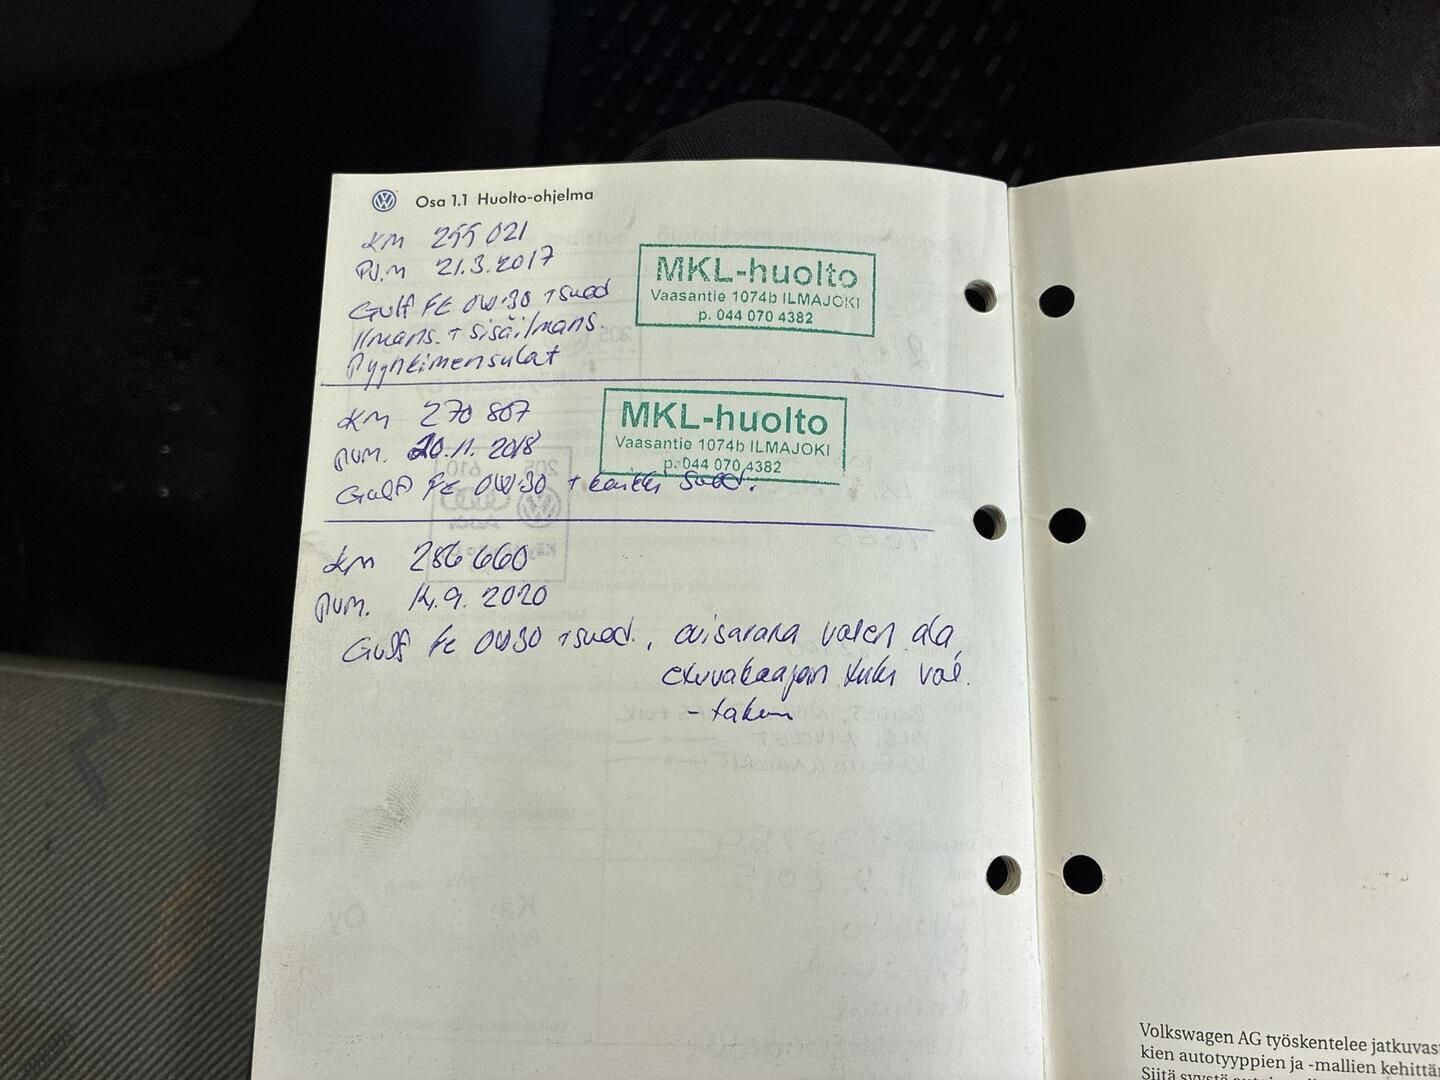 Osa 1.1 Huolto-ohjelma
KM 255 021
PVM 21.3.2017
Gulf FE 0W-30 + suod
Ilmans. + sisäilmans.
Pyyhkimensulat
MKL-huolto
Vaasantie 1074b ILMAJOKI
p. 044 070 4382
KM 270 807
PVM. 20.11.2018
Gulf FE 0W-30 + kaikki suod.
MKL-huolto
Vaasantie 1074b ILMAJOKI
p. 044 070 4382
KM 286 660
PVM. 14.9.2020
Gulf FE 0W30 + suod., ala
tuki
Volkswagen AG työskentelee jatkuvas
kien autotyyppien ja -mallien kehittäm